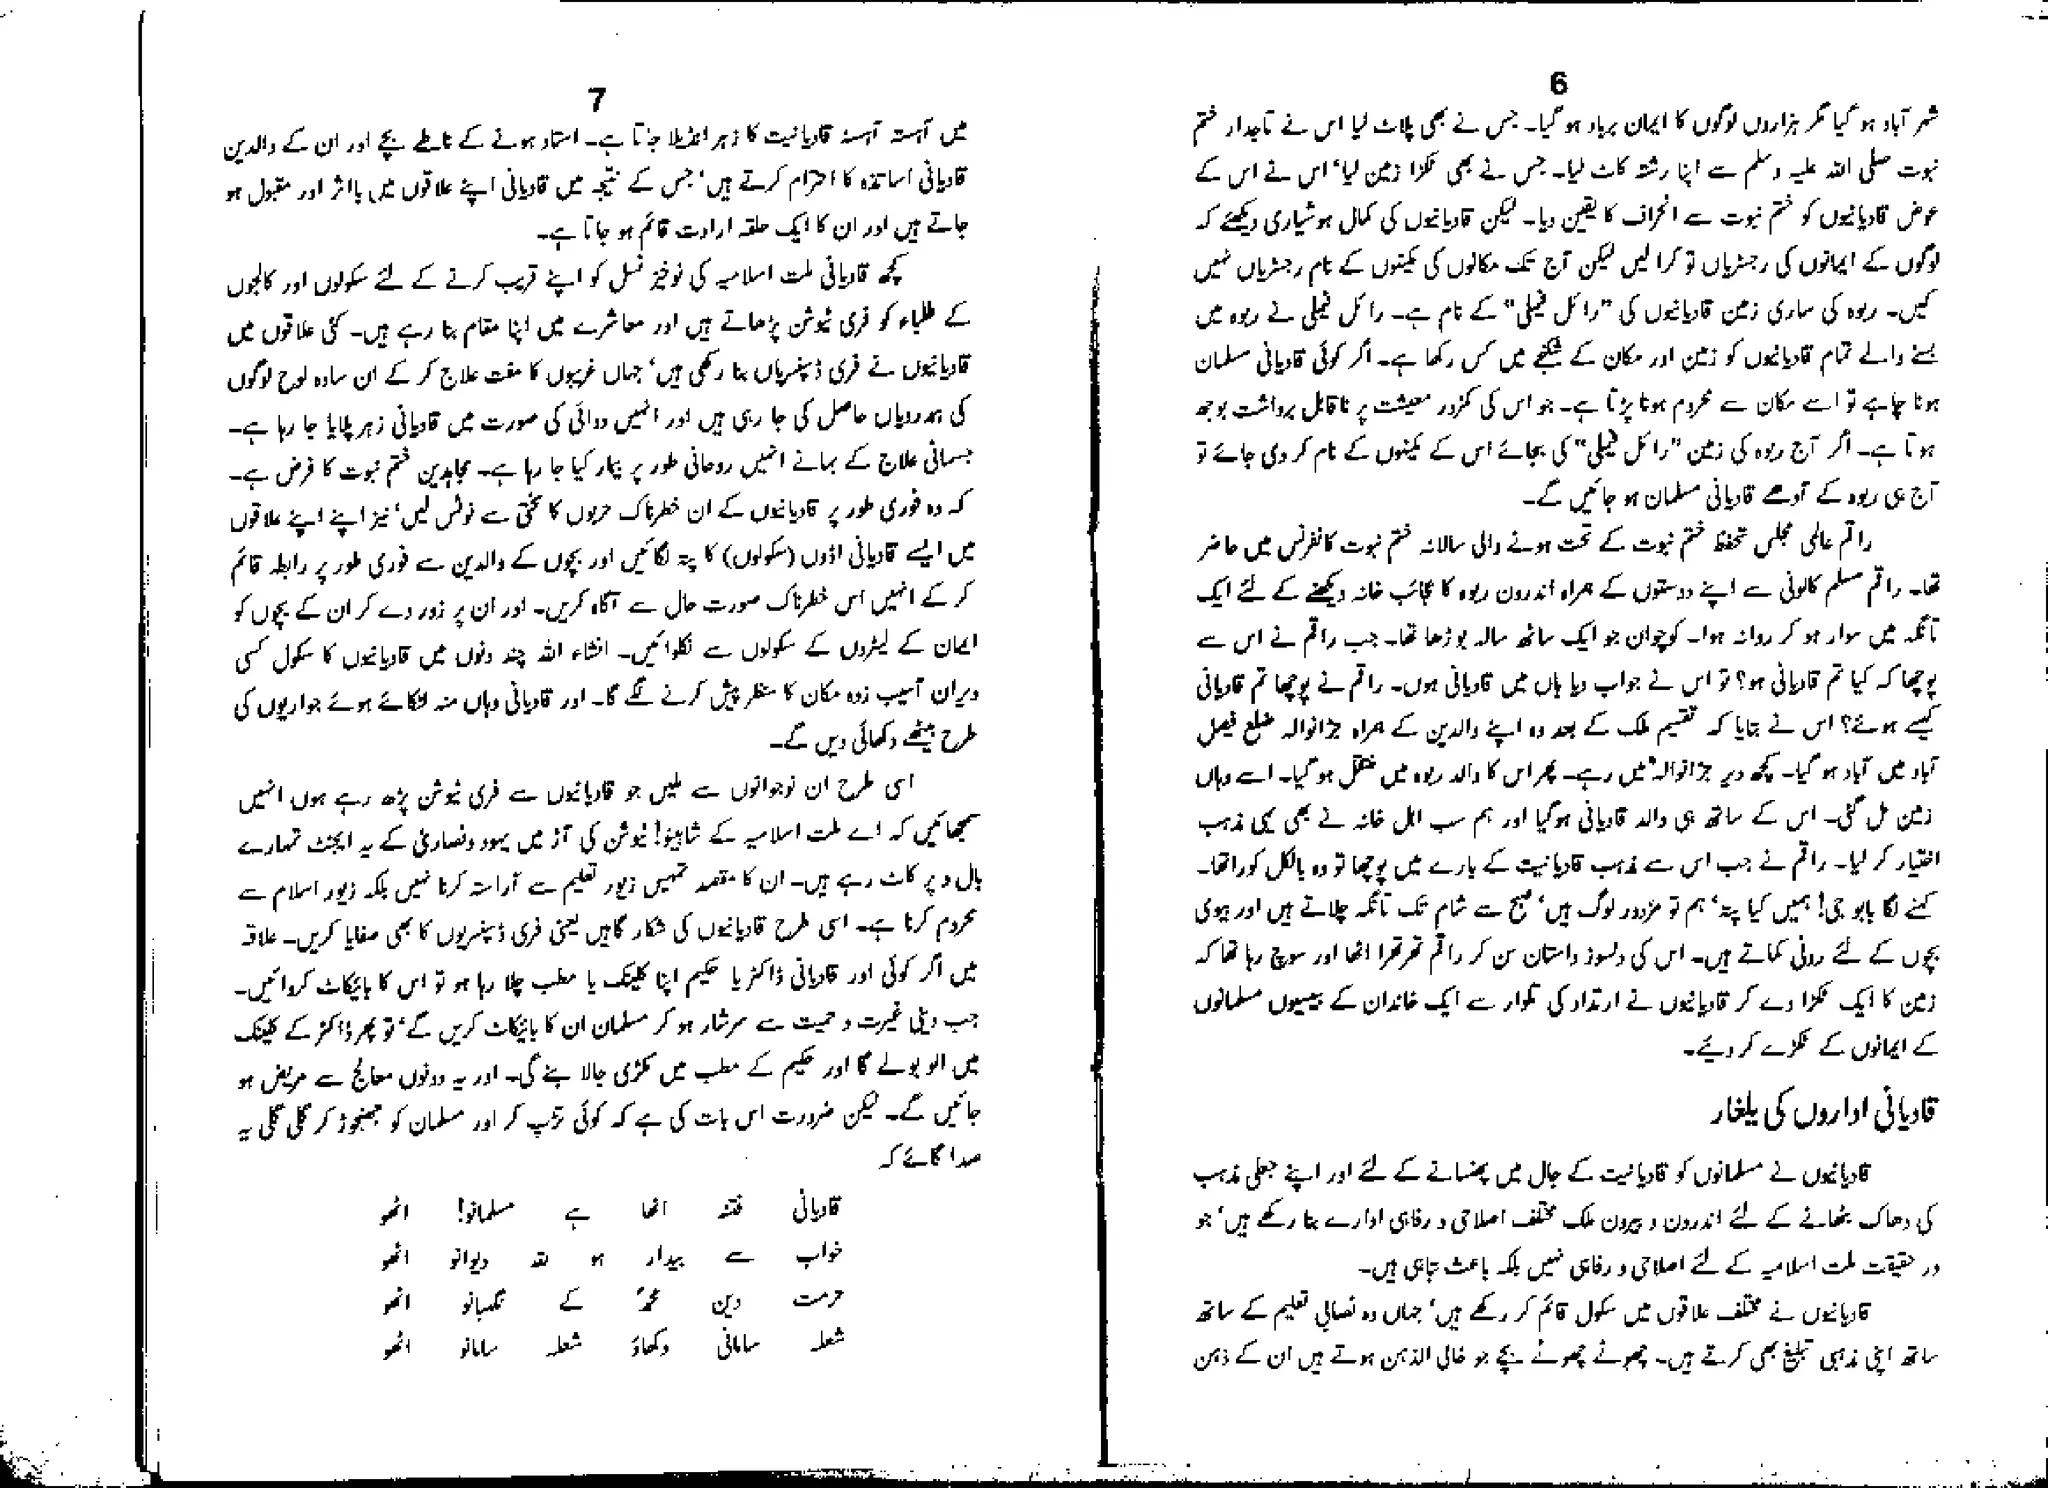 6
شہر آباد ہو گیا مگر ہزاروں لوگوں کا ایمان برباد ہو گیا۔ جس نے بھی پلاٹ لیا اس نے تاجدار ختم
نبوت صلی اللہ علیہ وسلم سے اپنا رشتہ کاٹ لیا۔ جس نے بھی ٹکڑا زمین لیا‘ اس نے اس کے
عوض قادیانیوں کو ختم نبوت سے انحراف کا یقین دیا۔ لیکن قادیانیوں کی کمال ہوشیاری دیکھئے کہ
لوگوں کے ایمانوں کی رجسٹریاں تو کرا لیں لیکن آج تک مکانوں کی مکینوں کے نام رجسٹریاں نہیں
کیں۔ ربوہ کی ساری زمین قادیانیوں کی "رائل فیملی" کے نام ہے۔ رائل فیملی نے ربوہ میں
بسنے والے تمام قادیانیوں کو زمین اور مکان کے شکنجے میں کس رکھا ہے۔ اگر کوئی قادیانی مسلمان
ہونا چاہے تو اسے مکان سے محروم ہونا پڑتا ہے۔ جو اس کی کمزور معیشت پر ناقابل برداشت بوجھ
ہوتا ہے۔ اگر آج ربوہ کی زمین "رائل فیملی" کی بجائے اس کے مکینوں کے نام کر دی جائے تو
آج ہی ربوہ کے آدھے قادیانی مسلمان ہو جائیں گے۔
راقم عالمی مجلس تحفظ ختم نبوت کے تحت ہونے والی سالانہ ختم نبوت کانفرنس میں حاضر
تھا۔ راقم مسلم کالونی سے اپنے دوستوں کے ہمراہ اندرون ربوہ کا عجائب خانہ دیکھنے کے لئے ایک
تانگہ میں سوار ہو کر روانہ ہوا۔ کوچوان جو ایک ساٹھ سالہ بوڑھا تھا۔ جب راقم نے اس سے
پوچھا کہ کیا تم قادیانی ہو؟ تو اس نے جواب دیا ہاں میں قادیانی ہوں۔ راقم نے پوچھا تم قادیانی
کیسے ہوئے؟ اس نے بتایا کہ تقسیم ملک کے بعد وہ اپنے والدین کے ہمراہ جڑانوالہ ضلع فیصل
آباد میں آباد ہو گیا۔ کچھ دیر جڑانوالہ میں رہے۔ پھر اس کا والد ربوہ میں منتقل ہو گیا۔ اسے وہاں
زمین مل گئی۔ اس کے ساتھ ہی والد قادیانی ہوگیا اور ہم سب اہل خانہ نے بھی یہی مذہب
اختیار کر لیا۔ راقم نے جب اس سے مذہب قادیانیت کے بارے میں پوچھا تو وہ بالکل کورا تھا۔
کہنے لگا بابو جی! ہمیں کیا پتہ‘ ہم تو مزدور لوگ ہیں‘ صبح سے شام تک تانگہ چلاتے ہیں اور بیوی
بچوں کے لئے روٹی کماتے ہیں۔ اس کی دلسوز داستان سن کر راقم تھرتھرا اٹھا اور سوچ رہا تھا کہ
زمین کا ایک ٹکڑا دے کر قادیانیوں نے ارتداد کی تلوار سے ایک خاندان کے بیسیوں مسلمانوں
کے ایمانوں کے ٹکڑے کر دیئے۔
قادیانی اداروں کی یلغار
قادیانیوں نے مسلمانوں کو قادیانیت کے جال میں پھنسانے کے لئے اور اپنے جعلی مذہب
کی دھاک بٹھانے کے لئے اندرون و بیرون ملک مختلف اصلاحی و رفاہی ادارے بنا رکھے ہیں‘ جو
در حقیقت ملت اسلامیہ کے لئے اصلاحی و رفاہی نہیں بلکہ باعث تباہی ہیں۔
قادیانیوں نے مختلف علاقوں میں سکول قائم کر رکھے ہیں‘ جہاں وہ نصابی تعلیم کے ساتھ
ساتھ اپنی مذہبی تبلیغ بھی کرتے ہیں۔ چھوٹے چھوٹے بچے جو خالی الذہن ہوتے ہیں ان کے ذہن
7
میں آہستہ آہستہ قادیانیت کا زہر انڈیلا جاتا ہے۔ استاد ہونے کے ناطے بچے اور ان کے والدین
قادیانی اساتذہ کا احترام کرتے ہیں‘ جس کے نتیجہ میں قادیانی اپنے علاقوں میں بااثر اور مقبول ہو
جاتے ہیں اور ان کا ایک حلقہ ارادت قائم ہو جاتا ہے۔
کچھ قادیانی ملت اسلامیہ کی نوخیز نسل کو اپنے قریب کرنے کے لئے سکولوں اور کالجوں
کے طلباء کو فری ٹیوشن پڑھاتے ہیں اور معاشرے میں اپنا مقام بنا رہے ہیں۔ کئی علاقوں میں
قادیانیوں نے فری ڈسپنسریاں بنا رکھی ہیں‘ جہاں غریبوں کا مفت علاج کر کے ان سادہ لوح لوگوں
کی ہمدردیاں حاصل کی جا رہی ہیں اور انہیں دوائی کی صورت میں قادیانی زہر پلایا جا رہا ہے۔
جسمانی علاج کے بہانے انہیں روحانی طور پر بیمار کیا جا رہا ہے۔ مجاہدین ختم نبوت کا فرض ہے۔
کہ وہ فوری طور پر قادیانیوں کے ان خطرناک حربوں کا سختی سے نوٹس لیں‘ نیز اپنے اپنے علاقوں
میں ایسے قادیانی اڈوں (سکولوں) کا پتہ لگائیں اور بچوں کے والدین سے فوری طور پر رابطہ قائم
کر کے انہیں اس خطرناک صورت حال سے آگاہ کریں۔ اور ان پر زور دے کر ان کے بچوں کو
ایمان کے لیٹروں کے سکولوں سے نکلوائیں۔ انشاء اللہ چند دنوں میں قادیانیوں کا سکول کسی
ویران آسیب زدہ مکان کا منظر پیش کرنے لگے گا۔ اور قادیانی وہاں منہ لٹکائے ہوئے جواریوں کی
طرح بیٹھے دکھائی دیں گے۔
اسی طرح ان نوجوانوں سے ملیں جو قادیانیوں سے فری ٹیوشن پڑھ رہے ہوں انہیں
سمجھائیں کہ اے ملت اسلامیہ کے شاہینو! ٹیوشن کی آڑ میں یہود ونصاریٰ کے یہ ایجنٹ تمہارے
بال و پر کاٹ رہے ہیں۔ ان کا مقصد تمہیں زیور تعلیم سے آراستہ کرنا نہیں بلکہ زیور اسلام سے
محروم کرنا ہے۔ اسی طرح قادیانیوں کی شکار گاہیں یعنی فری ڈسپنسریوں کا بھی صفایا کریں۔ علاقہ
میں اگر کوئی اور قادیانی ڈاکٹر یا حکیم اپنا کلینک یا مطب چلا رہا ہو تو اس کا بائیکاٹ کروائیں۔
جب دینی غیرت و حمیت سے سرشار ہو کر مسلمان ان کا بائیکاٹ کریں گے‘ تو پھر ڈاکٹر کے کلینک
میں الو بولے گا اور حکیم کے مطب میں مکڑی جالا بنے گی۔ اور یہ دونوں معالج سے مریض ہو
جائیں گے۔ لیکن ضرورت اس بات کی ہے کہ کوئی تڑپ کر اور مسلمان کو جھنجوڑ کر گلی گلی یہ
صدا لگائے کہ
قادیانی فتنہ اٹھا ہے مسلمانو! اٹھو
خواب سے بیدار ہو اے دیوانو اٹھو
حرمت دین محمدؐ کے نگہبانو اٹھو
شعلہ سامانی دکھاؤ شعلہ سامانو اٹھو